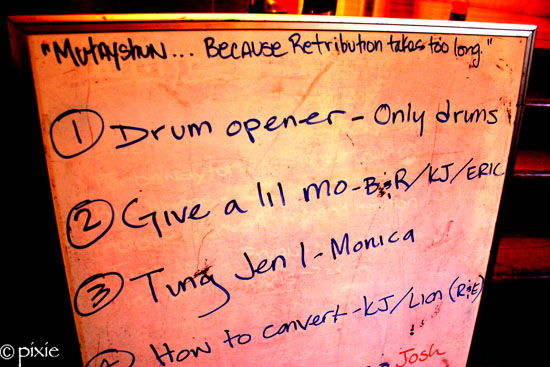 "Mutayshun... Because Retribution takes too long."
1 Drum opener - Only drums
2 Give a lil mo - B&R/KJ/ERIC
3 Tung Jen 1 - Monica
4 How to convert - KJ/Lion (R&E)
Josh
© pixie